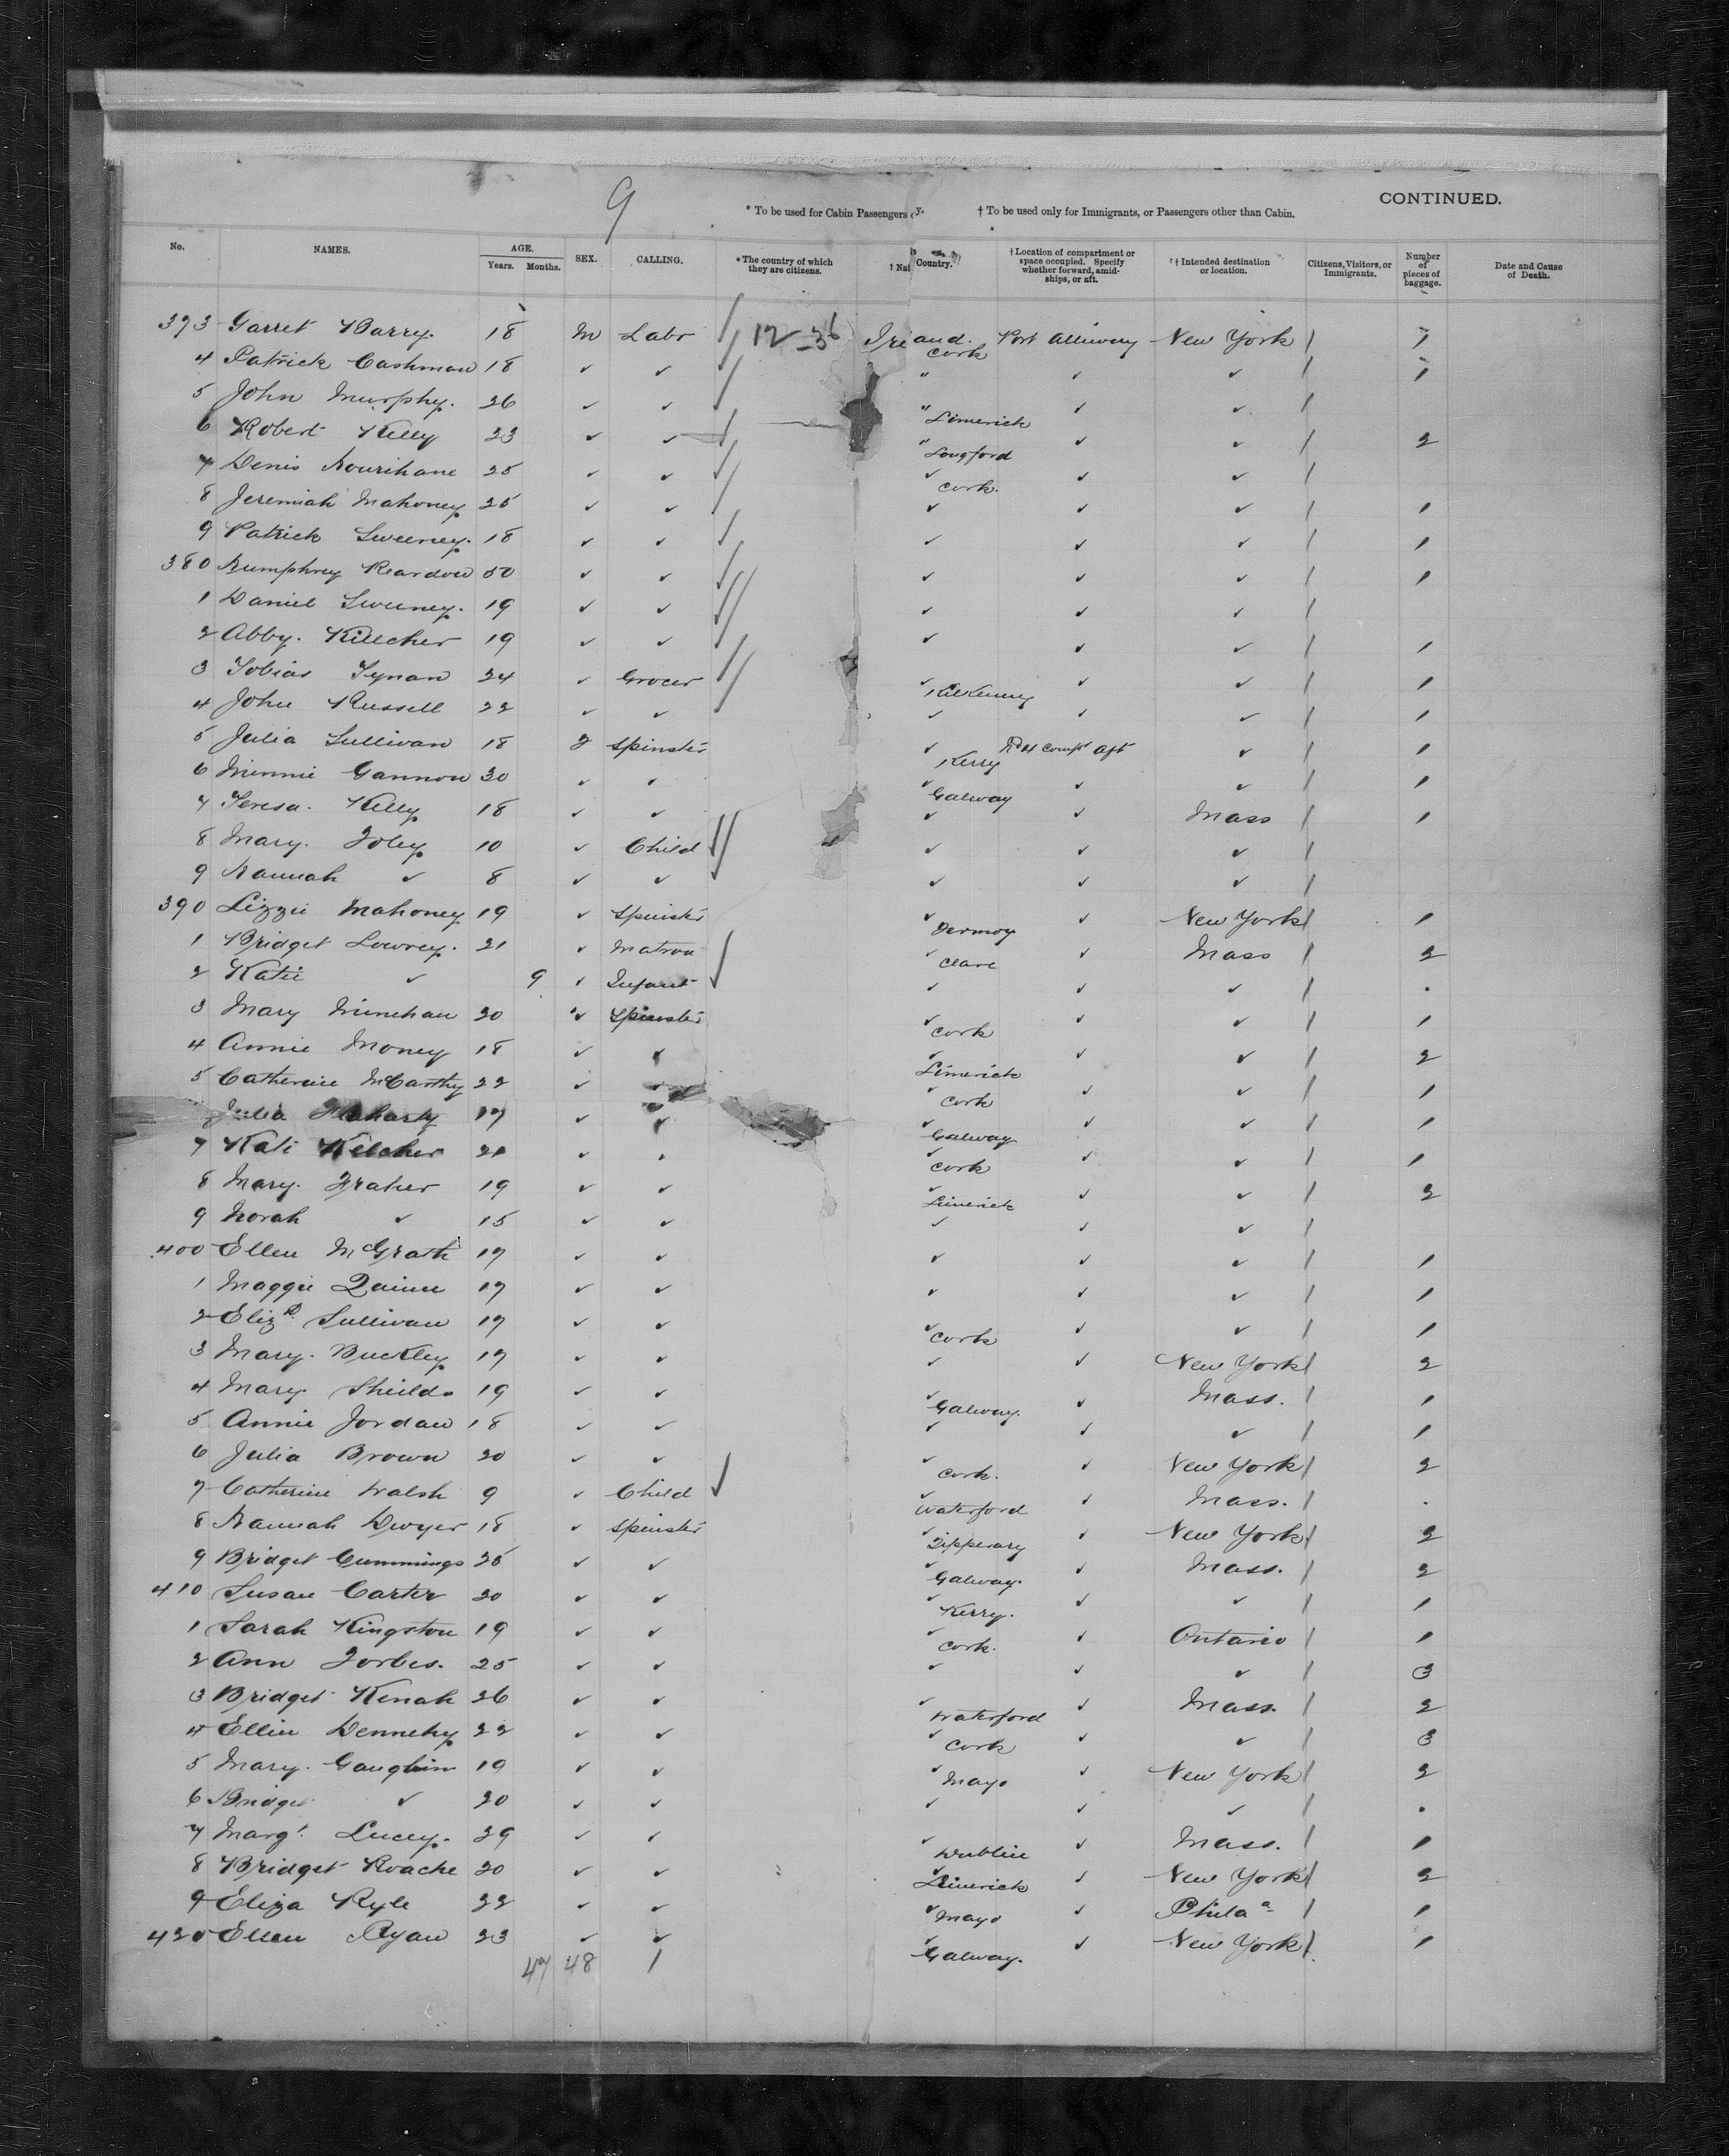 9
CONTINUED.
* To be used for Cabin Passengers y. † To be used only for Immigrants, or Passengers other than Cabin.
No. NAMES. AGE. Years. Months. SEX. CALLING. *The country of which they are citizens. † Nat Country. †Location of compartment or space occupied. Specify whether forward, amidships, or aft. †Intended destination or location. Citizens, Visitors, or Immigrants. Number of pieces of baggage. Date and Cause of Death.
373 Garret Barry. 18 M Labr 12-36 Ireland. Cork Port Alleway New York / 1
4 Patrick Cashman 18 ✓ ✓ " ✓ ✓ / 1
5 John Murphy. 26 ✓ ✓ " Limerick ✓ ✓ /
6 Robert Kelly 23 ✓ ✓ " Longford ✓ ✓ / 2
7 Denis Hourihane 25 ✓ ✓ ✓ Cork. ✓ ✓ /
8 Jeremiah Mahoney 25 ✓ ✓ ✓ ✓ ✓ / 1
9 Patrick Sweeney. 18 ✓ ✓ ✓ ✓ ✓ / 1
380 Humphrey Reardon 50 ✓ ✓ ✓ ✓ ✓ / 1
1 Daniel Sweeney. 19 ✓ ✓ ✓ ✓ ✓ /
2 Abby. Killeher 19 ✓ ✓ ✓ ✓ ✓ / 1
3 Tobias Tynan 24 ✓ Grocer ✓ Kilkenny ✓ ✓ / 1
4 John Russell 22 ✓ ✓ ✓ ✓ ✓ / 1
5 Julia Sullivan 18 F Spinster ✓ Kerry Compt Aft ✓ / 1
6 Minnie Gannon 30 ✓ ✓ ✓ Galway ✓ ✓ / 1
7 Teresa. Kelly 18 ✓ ✓ ✓ ✓ Mass / 1
8 Mary. Foley 10 ✓ Child ✓ ✓ ✓ /
9 Hannah ✓ 8 ✓ ✓ ✓ ✓ ✓ /
390 Lizzie Mahoney 19 ✓ Spinster ✓ Fermoy ✓ New York / 1
1 Bridget Lowrey. 21 ✓ Matron ✓ Clare ✓ Mass / 2
2 Katie ✓ 9 ✓ Infant ✓ ✓ ✓ / .
3 Mary Minehan 20 ✓ Spinster ✓ Cork ✓ ✓ / 1
4 Annie Money 18 ✓ ✓ ✓ Limerick ✓ ✓ / 2
5 Catherine McCarthy 22 ✓ ✓ ✓ Cork ✓ ✓ / 1
Julia Flaharty 17 ✓ ✓ ✓ Galway ✓ ✓ / 1
7 Kate Kelcher 21 ✓ ✓ ✓ Cork ✓ ✓ / 1
8 Mary. Fraher 19 ✓ ✓ ✓ Limerick ✓ ✓ / 2
9 Norah ✓ 15 ✓ ✓ ✓ ✓ ✓ /
400 Ellen McGrath 17 ✓ ✓ ✓ ✓ ✓ / 1
1 Maggie Quinn 17 ✓ ✓ ✓ ✓ ✓ / 1
2 Elizth Sullivan 17 ✓ ✓ ✓ Cork ✓ ✓ / 1
3 Mary. Buckley 17 ✓ ✓ ✓ ✓ New York / 2
4 Mary. Shields 19 ✓ ✓ ✓ Galway. ✓ Mass. / 1
5 Annie Jordan 18 ✓ ✓ ✓ ✓ ✓ / 1
6 Julia Brown 20 ✓ ✓ ✓ Cork. ✓ New York / 2
7 Catherine Walsh 9 ✓ Child ✓ Waterford ✓ Mass. / .
8 Hannah Dwyer 18 ✓ Spinster ✓ Tipperary ✓ New York / 2
9 Bridget Cummings 25 ✓ ✓ ✓ Galway. ✓ Mass. / 2
410 Susan Carter 20 ✓ ✓ ✓ Kerry. ✓ ✓ / 1
1 Sarah Kingston 19 ✓ ✓ ✓ Cork. ✓ Ontario / 1
2 Ann Forbes. 25 ✓ ✓ ✓ ✓ ✓ / 3
3 Bridget Kenah 26 ✓ ✓ ✓ Waterford ✓ Mass. / 2
4 Ellin Dennehy 22 ✓ ✓ ✓ Cork ✓ ✓ / 3
5 Mary. Gaughin 19 ✓ ✓ ✓ Mayo ✓ New York / 2
6 Bridget ✓ 20 ✓ ✓ ✓ ✓ ✓ / .
7 Margt. Lucey. 29 ✓ ✓ ✓ Dublin ✓ Mass. / 1
8 Bridget Roache 20 ✓ ✓ ✓ Limerick ✓ New York / 2
9 Eliza Kyle 22 ✓ ✓ ✓ Mayo ✓ Phila / 1
420 Ellen Ryan 23 ✓ ✓ ✓ Galway. ✓ New York / 1
47 48 1